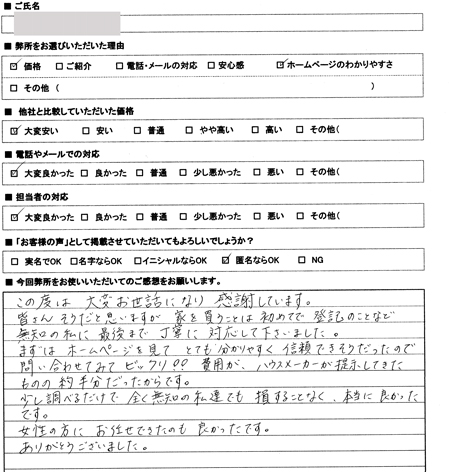 ■ ご氏名
■ 弊所をお選びいただいた理由
☑ 価格 □ ご紹介 □ 電話・メールの対応 □ 安心感 ☑ ホームページのわかりやすさ
□ その他 ( )
■ 他社と比較していただいた価格
☑ 大変安い □ 安い □ 普通 □ やや高い □ 高い □ その他(
■ 電話やメールでの対応
☑ 大変良かった □ 良かった □ 普通 □ 少し悪かった □ 悪い □ その他(
■ 担当者の対応
☑ 大変良かった □ 良かった □ 普通 □ 少し悪かった □ 悪い □ その他(
■ 「お客様の声」として掲載させていただいてもよろしいでしょうか?
□ 実名でOK □ 名字ならOK □ イニシャルならOK ☑ 匿名ならOK □ NG
■ 今回弊所をお使いいただいてのご感想をお願いします。
この度は 大変お世話になり 感謝しています。
皆さん そうだと思いますが 家を買うことは 初めてで 登記のことなど
無知の私に 最後まで 丁寧に 対応して下さいました。
まずは ホームページを見て とても 分かりやすく 信頼できそうだったので
問い合わせてみて ビックリ!! 費用が、ハウスメーカーが提示してきた
ものの 約半分だったからです。
少し調べるだけで 全く無知の私達でも 損することなく、本当に良かった
です。
女性の方に お任せできたのも 良かったです。
ありがとうございました。